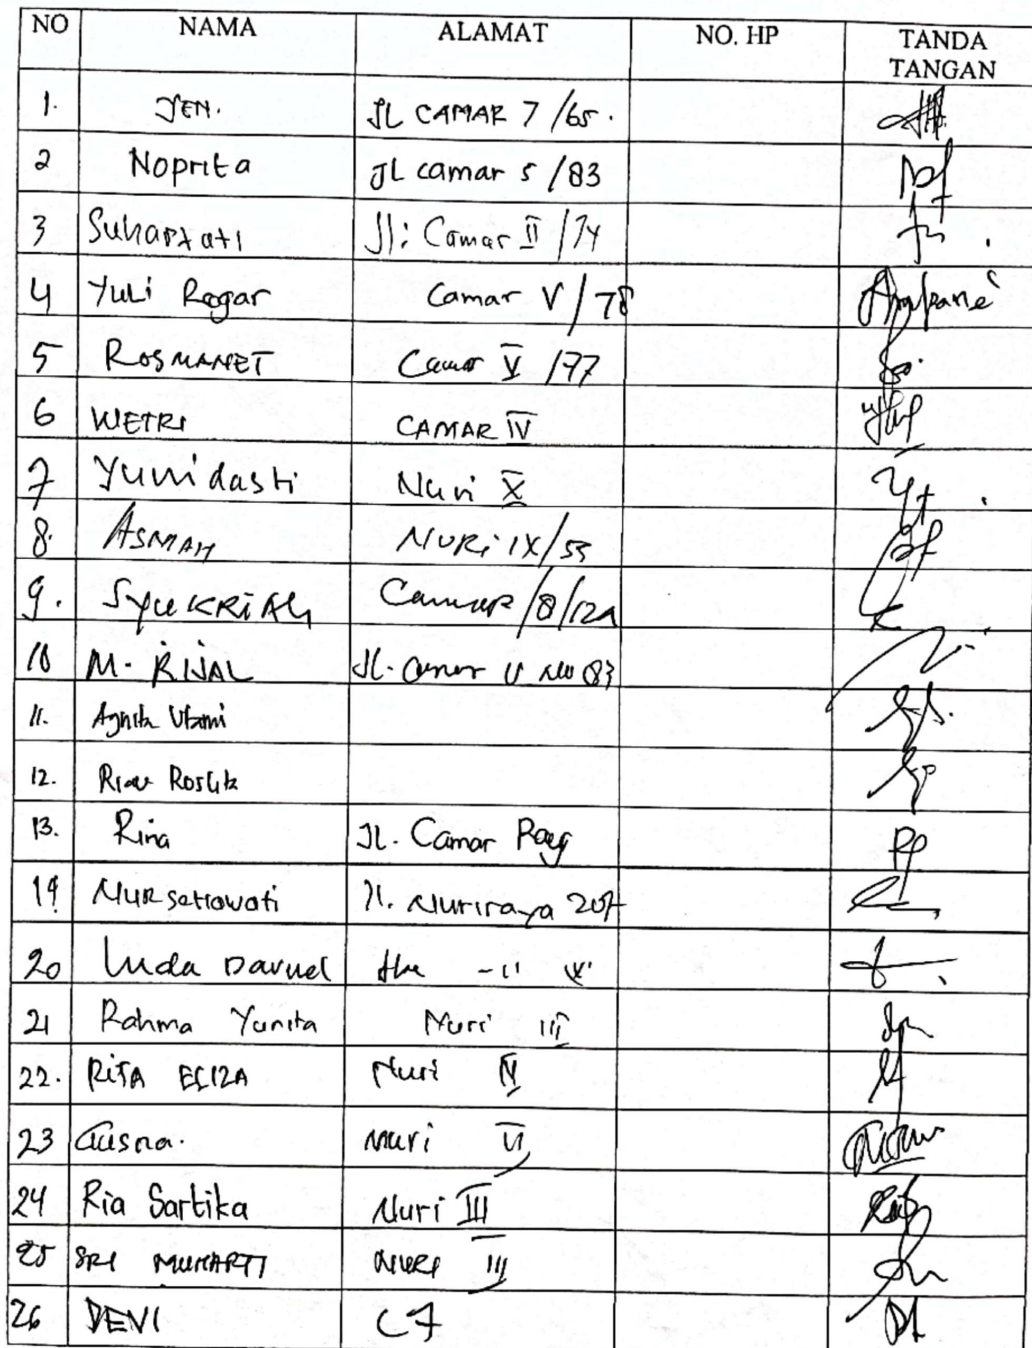 NO NAMA ALAMAT NO. HP TANDA TANGAN
1. JEN. JL CAMAR 7/65.
2 Noprita JL camar 5/83
3 Suhartati Jl: Camar II/74
4 Yuli Regar Camar V/78
5 ROSMANET Camar V/77
6 WETRI CAMAR IV
7 Yunidasti Nuri X
8. ASMAH NURi IX/55
9. SYUKRIAH Camar/8/12A
10 M. RIJAL JL. Camar V no 83
11. Agnita Utami
12. Roslita
13. Rina JL. Camar Ray
19 Nursetiowati Jl. Nuriraya 207
20
21 Rahma Yunita Nuri III
22. RITA ELIZA Nuri IV
23 Gusna. nuri VI
24 Ria Sartika Nuri III
25 SRI MUHARTI NURI III
26 DEVI C7